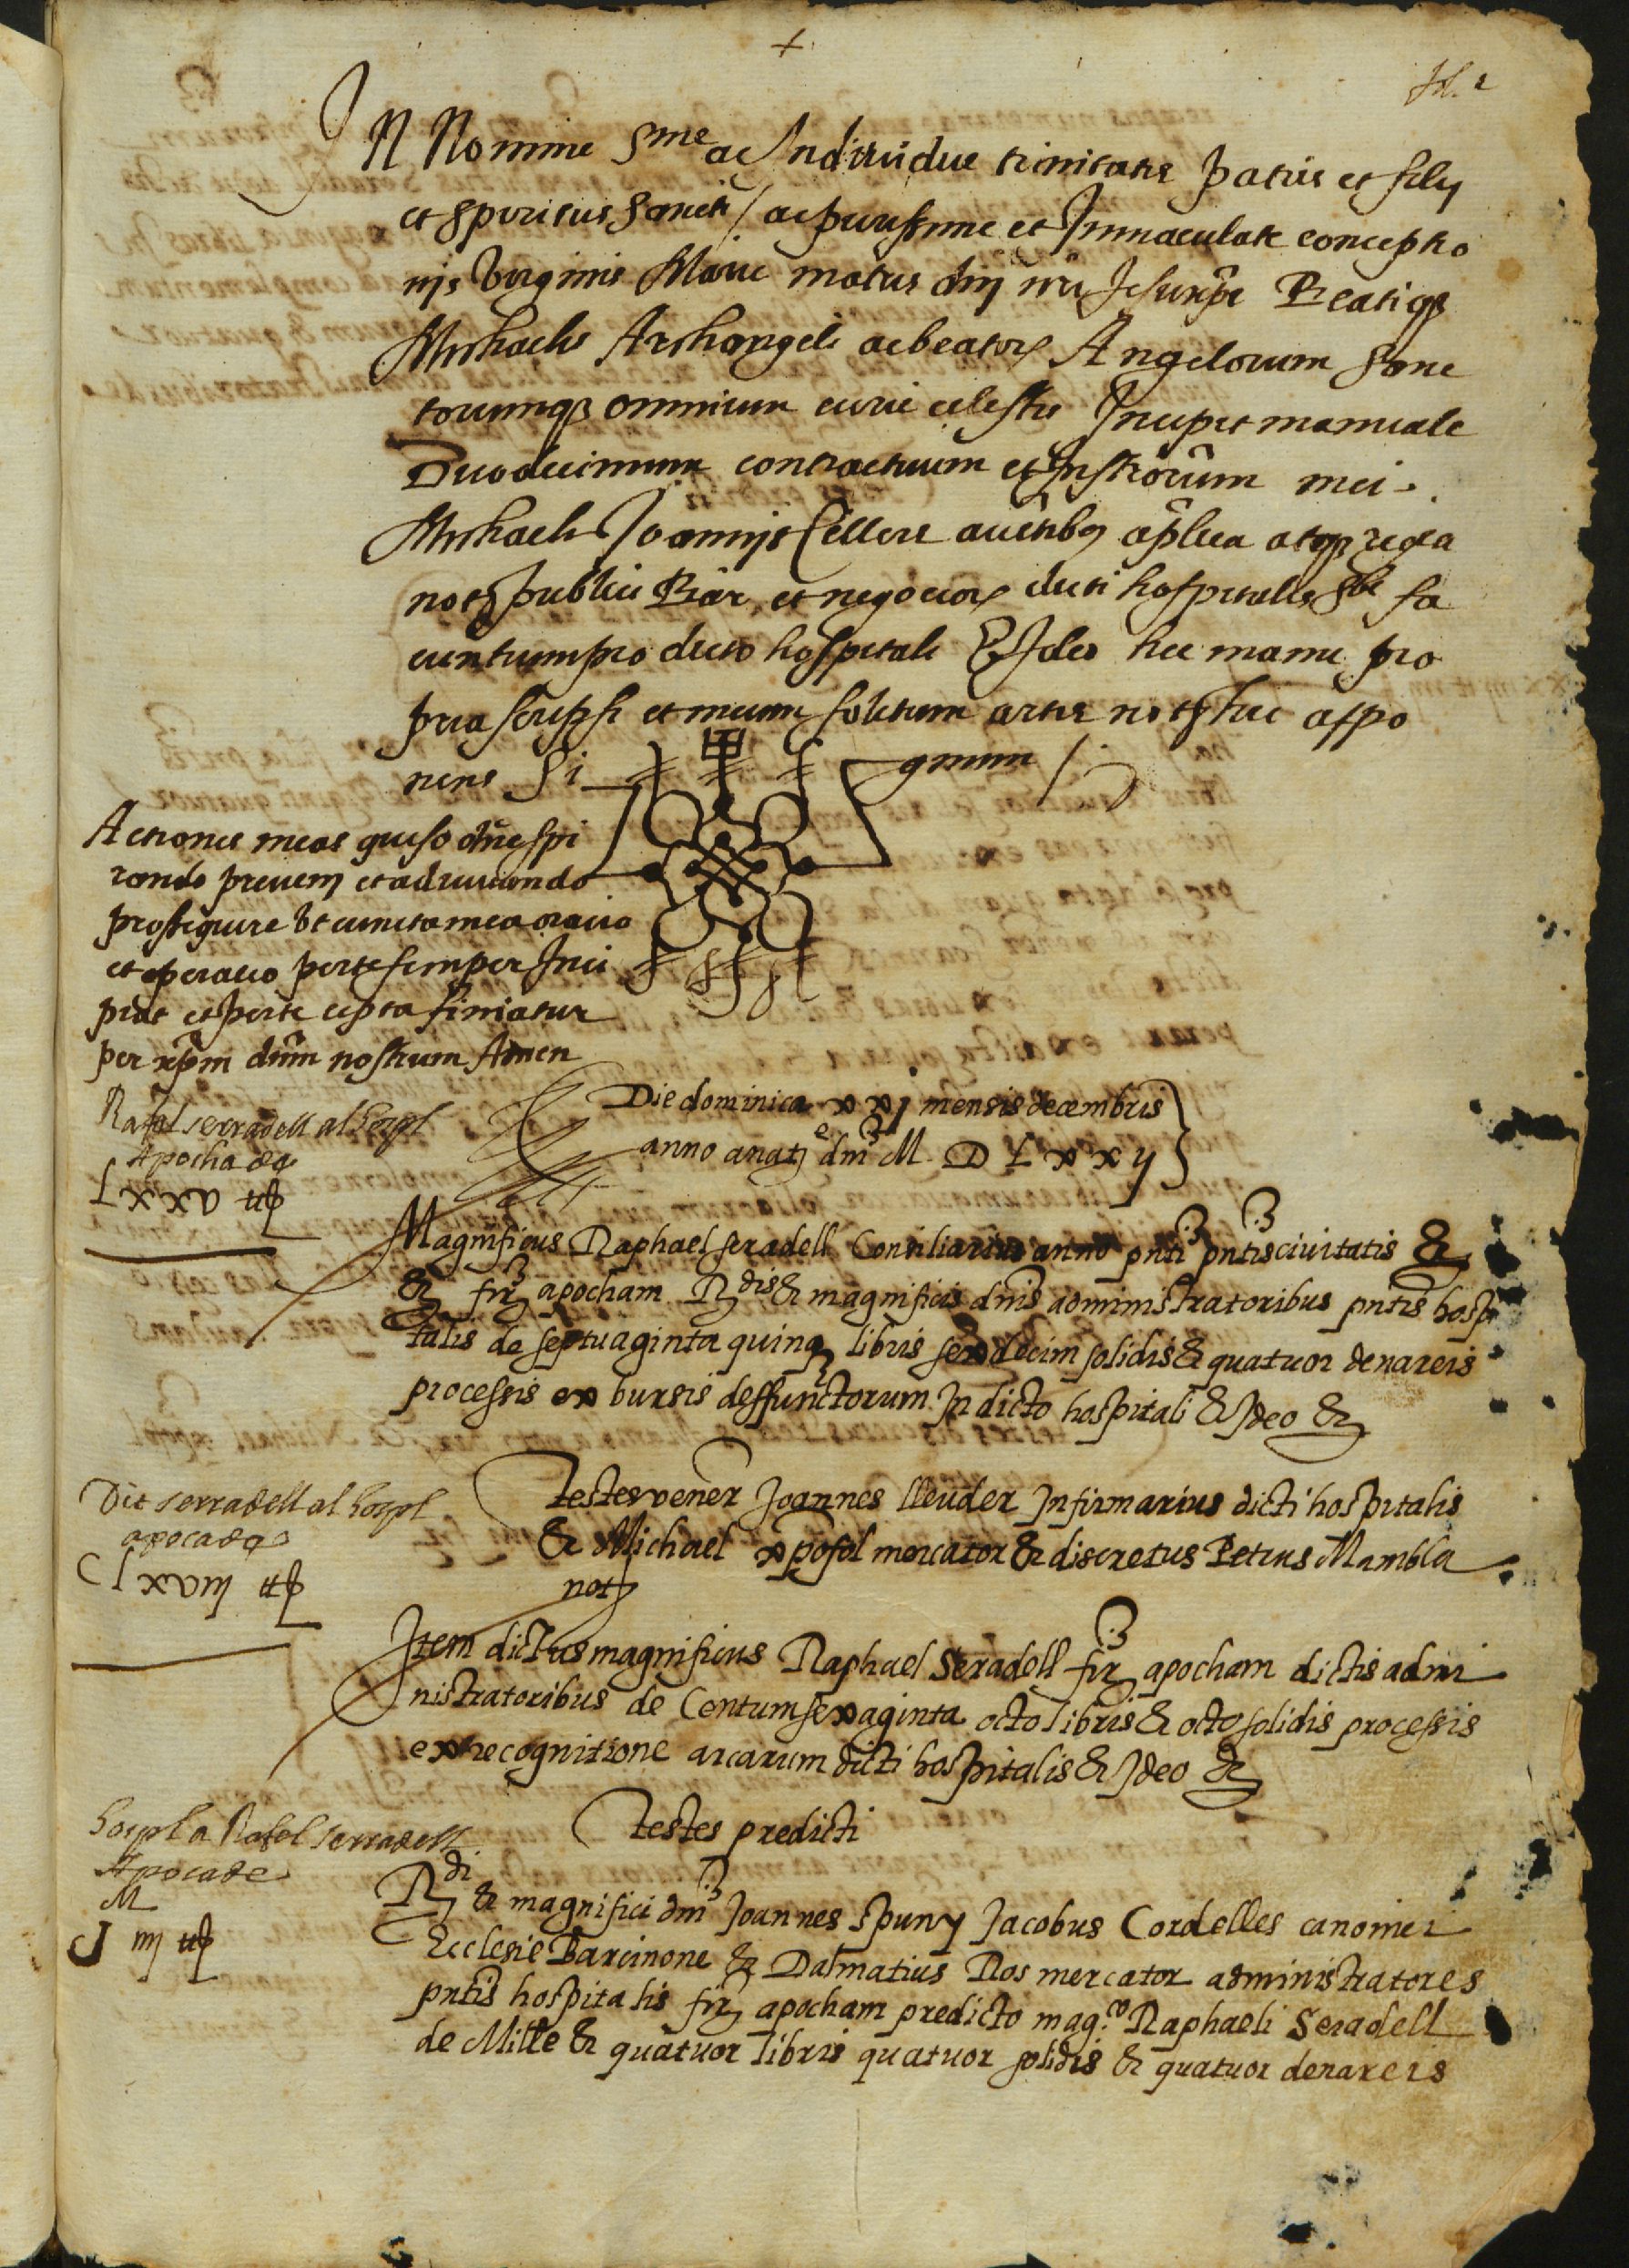 +
In Nomine Sme ac Individue trinitatis patris et filij
et Spiritus Sancti / ac purissime et Immaculate conceptio
nis Virginis Marie matris dnj nri Jesu xpi Beatiqz
Michaelis Archangeli ac beator Angelorum Sanc
torumqz omnium curie celestis Incipit manuale
Duodecimum contractuum et Instrorum mei
Michaelis Joannijs Cellers auctibus aplica atqz regia
not publici Bar, et negocior dicti hospitalis Sbe fa
cientium pro dicto hospitali Et Ideo hec manu pro
pria scripsi et meum solitum artis not hic appo
nens Si gnum /
Actiones meas queso dne spi
rando preueni et adiuuando
prosequere Vt cuncta mea oratio
et operatio per te semper Inci
piat et per te cepta finiatur
per xpm dnm nostrum Amen
Die dominica xxj mensis decembris
anno a natj dnj M D L xx ij
Rafel serradell al hospl
Apocha de
Lxxv ℔
Magnificus Raphael seradell Consiliarius anno pnti pntis ciuitatis &
& fir apocham Rdis & magnificis dnis administratoribus pntis hospi
talis de septuaginta quinqz libris sexdecim solidis & quatuor denareis
processis ex bursis deffunctorum In dicto hospitali & Ideo &
Testes vener Joannes lleuder Infirmarius dicti hospitalis
& Michael xpofol mercator & discretus Petrus Mambla
not
Dit serradell al hospl
apoca de
C lxviij ℔
Item dictus magnificus Raphael Seradell fir apocham dictis admi
nistratoribus de Centum sexaginta octo libris & octo solidis processis
ex recognitione arcarum dicti hospitalis & Ideo &
Testes predicti
hospl a Rafel serradell
Apoca de
M
J iiij ℔
Rdi & magnifici dnj Joannes spuny Jacobus Cordelles canonici
Ecclesie Barcinone & Dalmatius Ros mercator administratores
pntis hospitalis fir apocham predicto mag.co Raphaeli Seradell
de Mille & quatuor libris quatuor solidis & quatuor denareis